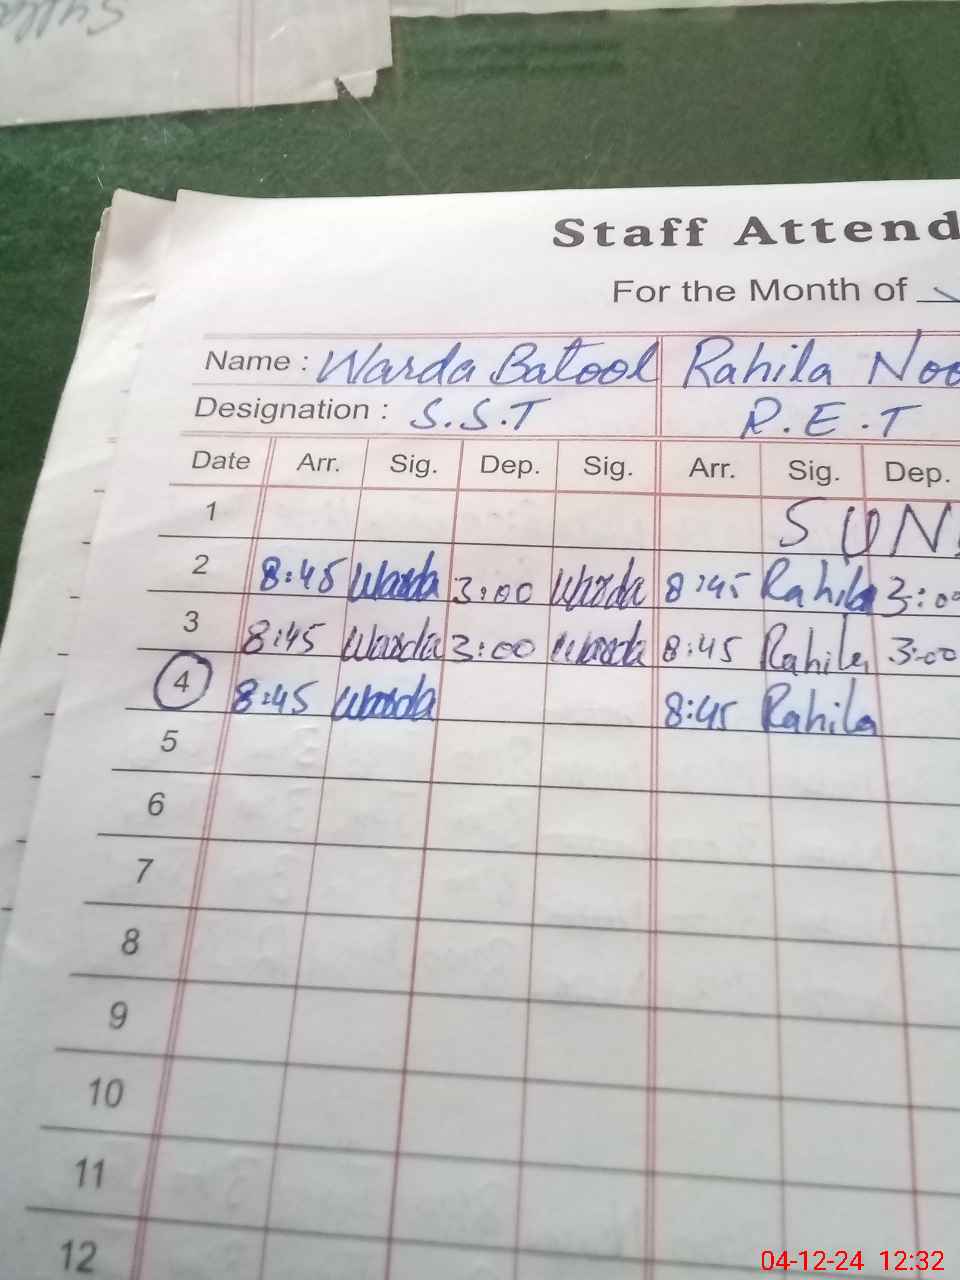 Staff Attend
For the Month of
Name : Warda Batool Rahila Noo
Designation : S.S.T R.E.T
Date Arr. Sig. Dep. Sig. Arr. Sig. Dep.
1 SUN
2 8:45 Warda 3:00 Warda 8:45 Rahila 3:00
3 8:45 Warda 3:00 Warda 8:45 Rahila 3:00
4 8:45 Warda 8:45 Rahila
5
6
7
8
9
10
11
12
04-12-24 12:32